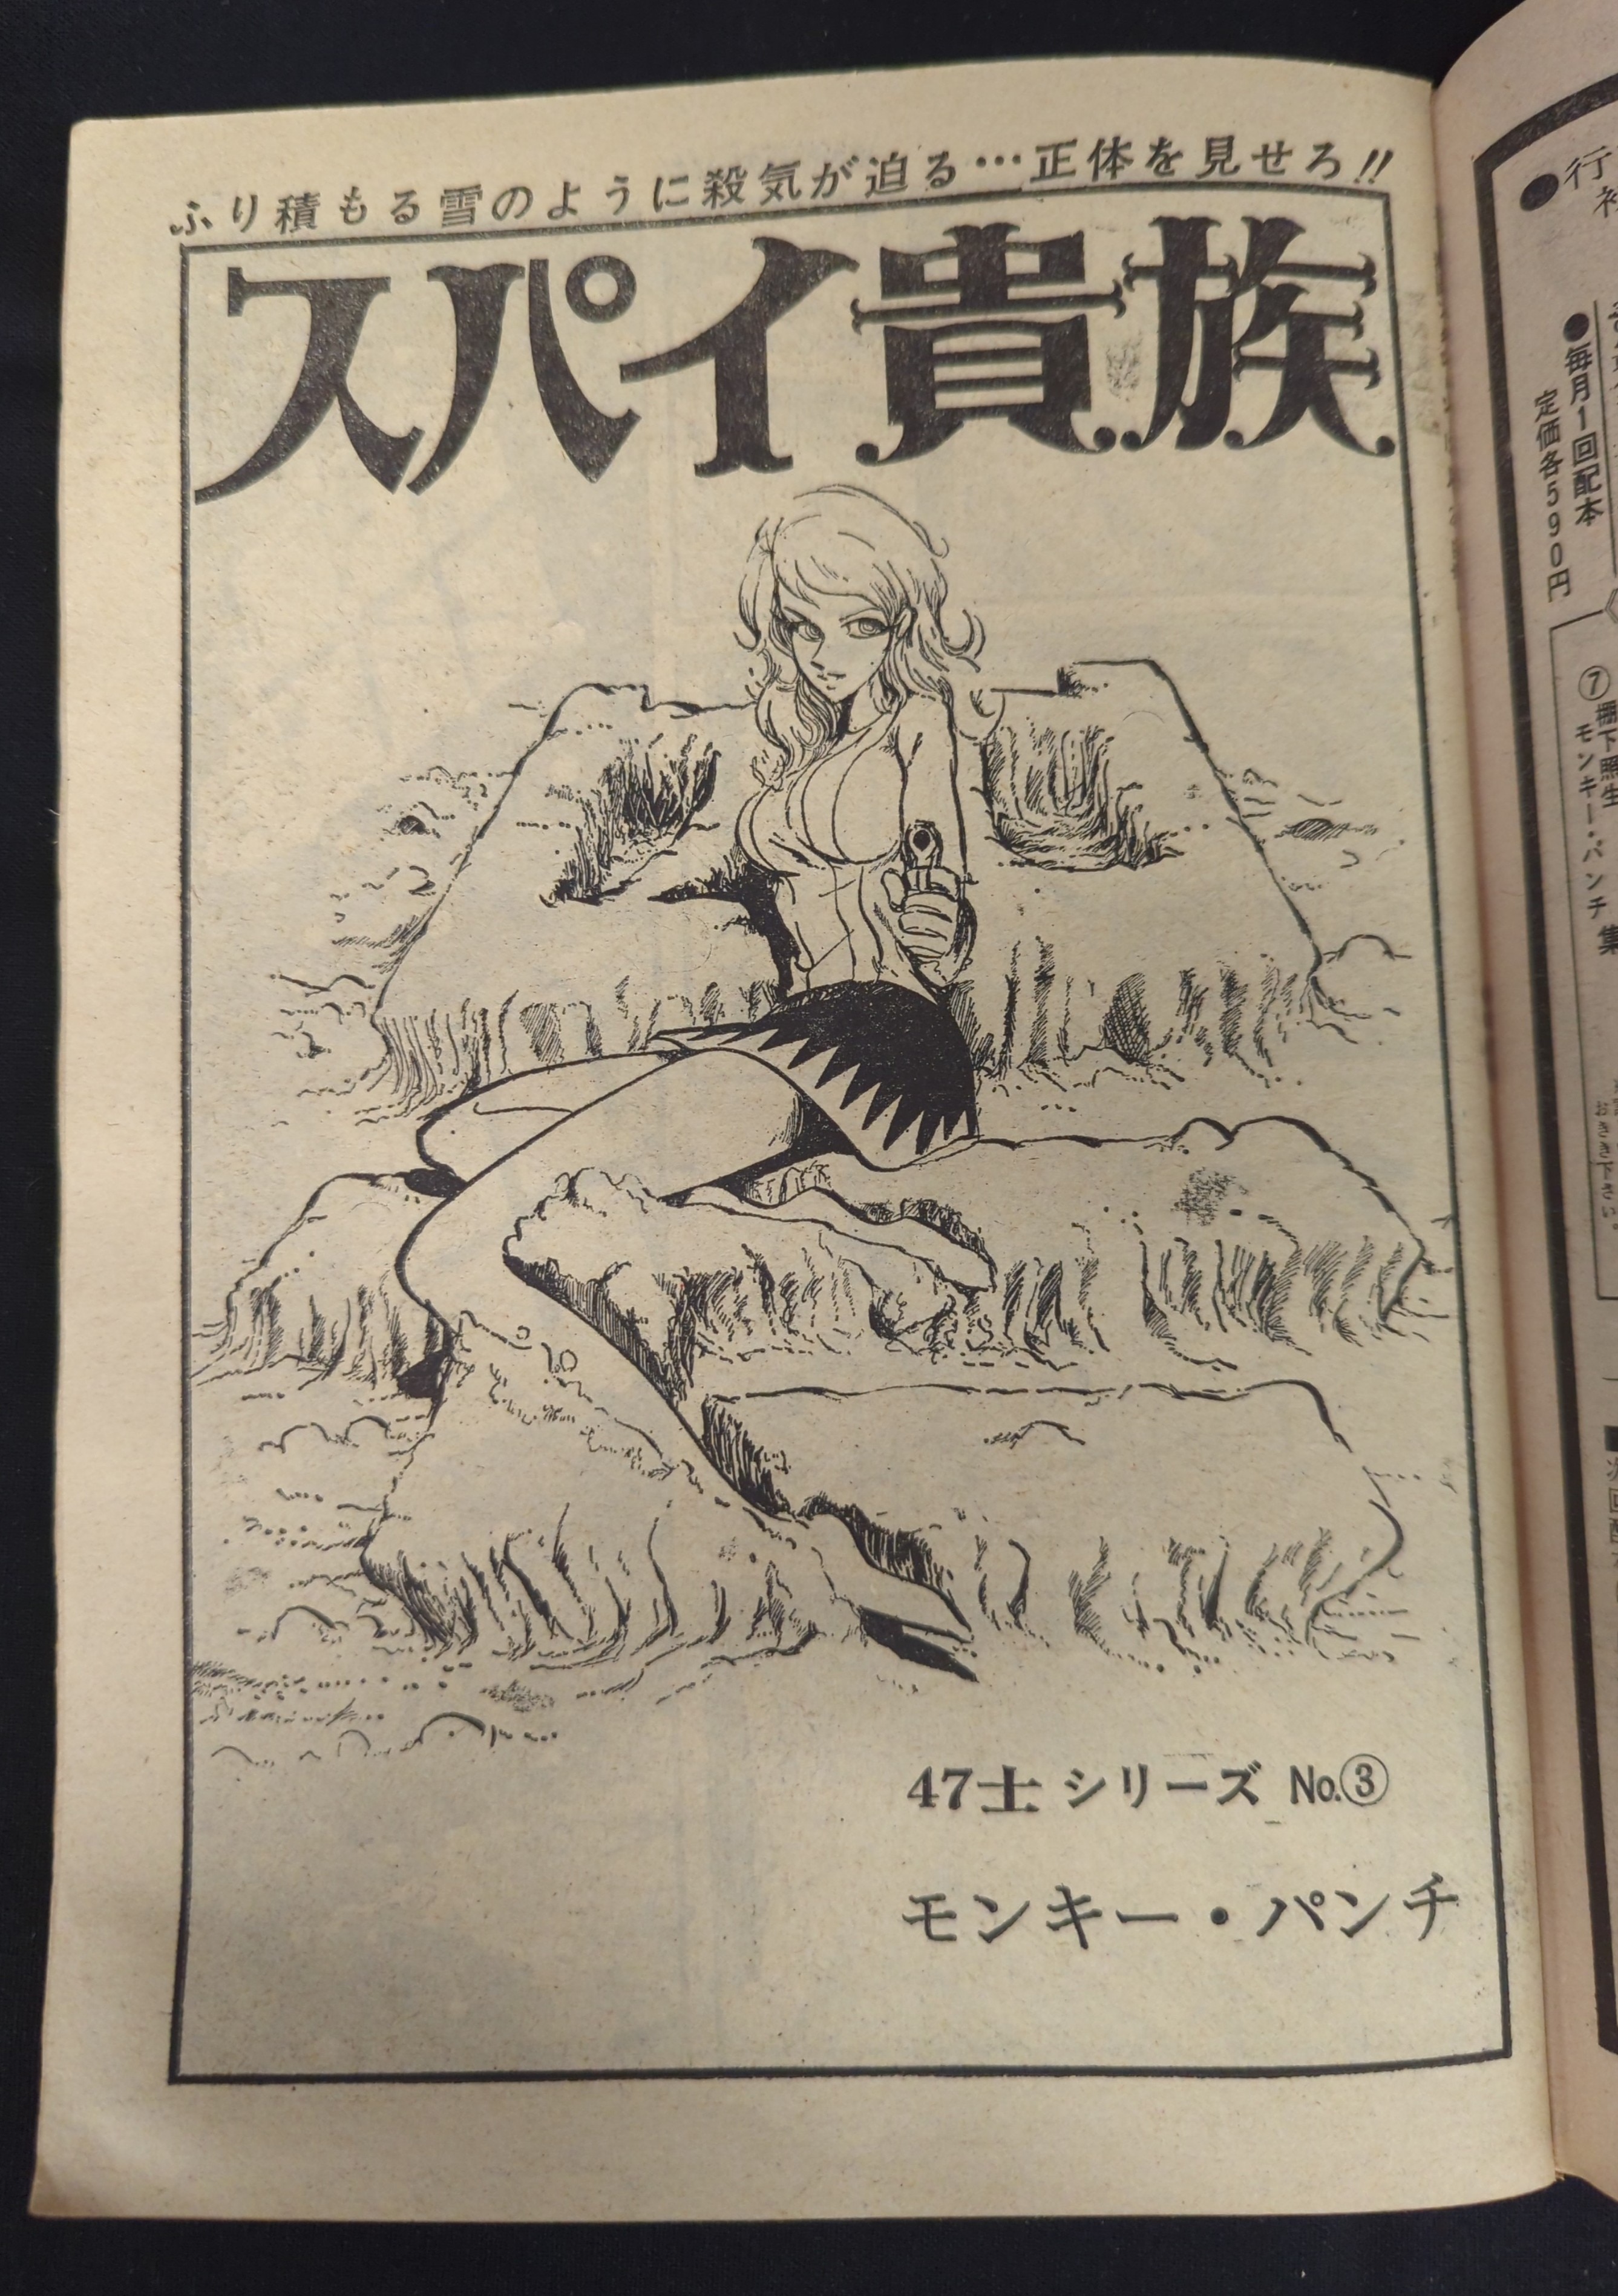 ふり積もる雪のように殺気が迫る…正体を見せろ!!
スパイ貴族
47士 シリーズ No.③
モンキー・パンチ
●行
●毎月1回配本
定価各590円
モンキー・パンチ集